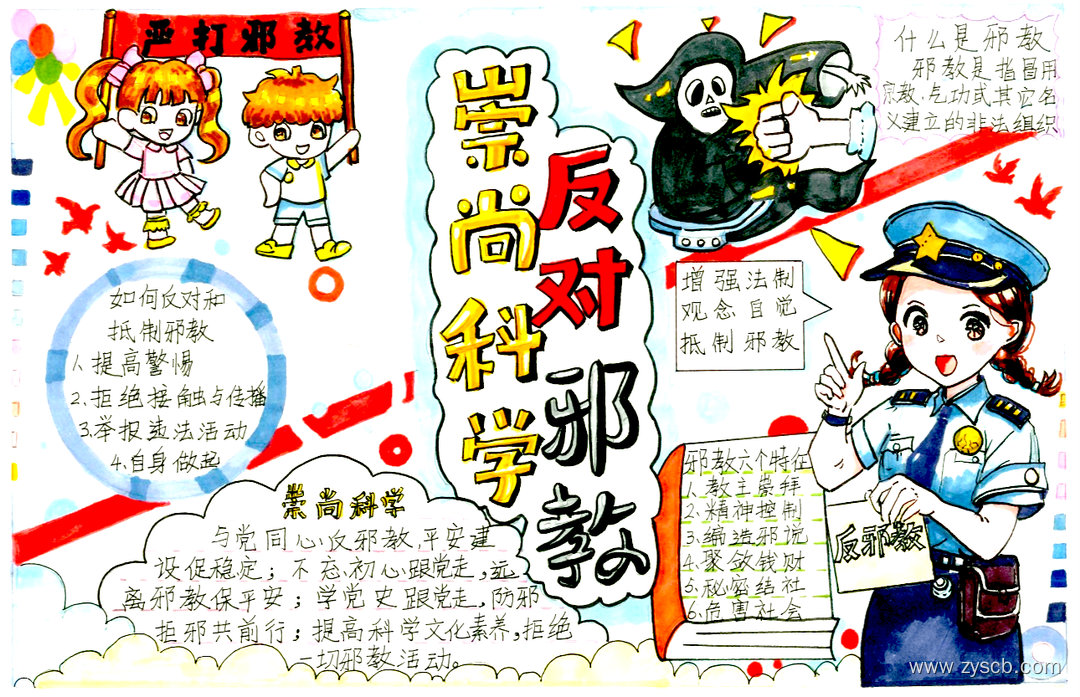 严打邪教
崇尚科学
反对邪教
什么是邪教
邪教是指冒用
宗教、气功或其它名
义建立的非法组织
如何反对和
抵制邪教
1、提高警惕
2、拒绝接触与传播
3、举报违法活动
4、自身做起
增强法制
观念自觉
抵制邪教
崇尚科学
与党同心反邪教,平安建
设促稳定；不忘初心跟党走,远
离邪教保平安；学党史跟党走,防邪
拒邪共前行；提高科学文化素养,拒绝
一切邪教活动。
邪教六个特征
1、教主崇拜
2、精神控制
3、编造邪说
4、聚敛钱财
5、秘密结社
6、危害社会
反邪教
www.zyscb.com